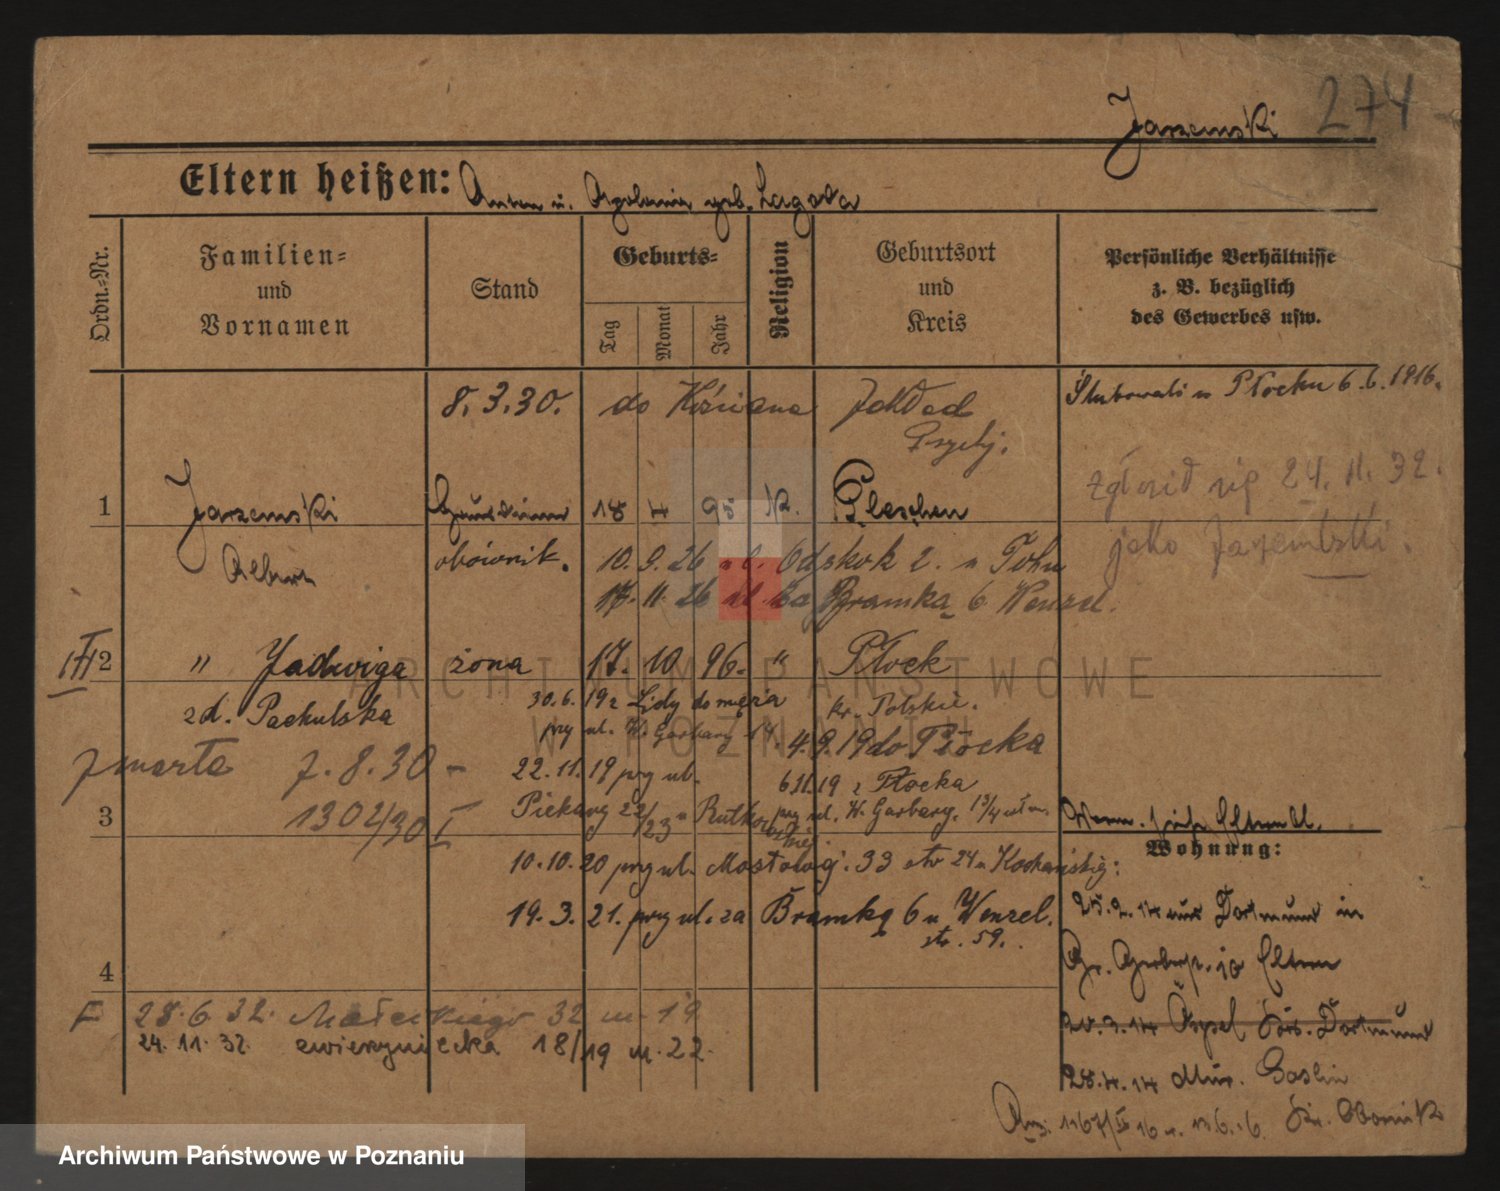 274
Jarzemski
Eltern heißen: Anton u. Apolonia geb. Lagoda
Ordn.-Nr.
Familien-
und
Vornamen
Stand
Geburts-
Tag
Monat
Jahr
Religion
Geburtsort
und
Kreis
Persönliche Verhältnisse
z. B. bezüglich
des Gewerbes usw.
8.3.30. do Zakład
Ślubowali w Płocku 6.6.1916.
zgłosił się 24.11.32.
jako
1 Jarzemski 18 4 95 K. Pleschen
obównik. 10.9.26 ul.
17.11.26 ul. Za Bramką 6 Wenzel.
III
2 " Jadwiga żona 17. 10 96. " Płock
zd. Pachulska
30.6.19 z Lidy do męża
kr. Polskie.
przy ul. W. Garbary
4.9.19 do Płocka
zmarła 7.8.30 -
22.11.19 przy ul.
6.11.19 z Płocka
1302/30 I
Piekary 22/23 u Rutkowskiej.
przy ul. W. Garbary.
3
10.10.20 przy ul. Mostowej. 33
Wohnung:
19.3.21. przy ul. za Bramką 6 u Wenzel.
str. 59.
25.2.14 aus Dortmund in
Gr. Gerberstr. 10 Eltern
4
F 28.6.32. Małeckiego 32 m. 19
24.11.32. zwierzyniecka 18/19 m. 22.
Dortmund
28.4.14 Mur. Goslin
Kr. Obornik
ARCHIWUM PAŃSTWOWE
W POZNANIU
Archiwum Państwowe w Poznaniu